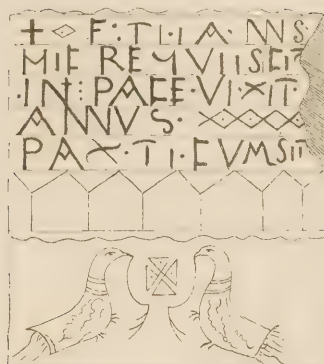 + ◇ F:TL·I·A·NNS·
MIE REMVIISEIT
·IN⋮PAEE·VI·XIT·
ANNVS· XXXX
PAX·TI·EVMSIT